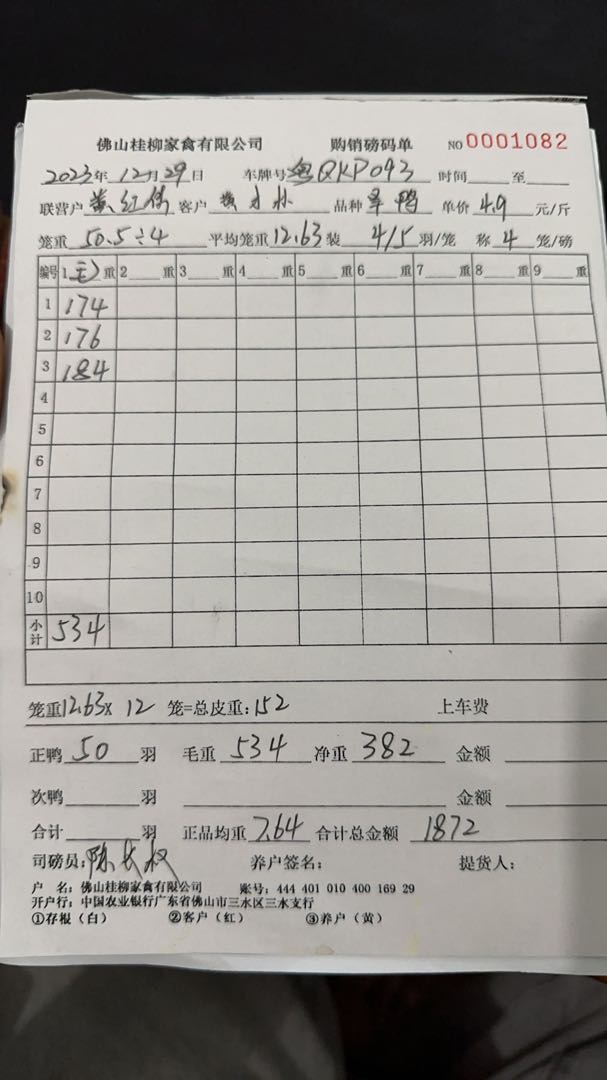 佛山桂柳家禽有限公司 购销磅码单 NO 0001082
2023年 12月 29日 车牌号 粤QKP093 时间 至
联营户 黄红伟 客户 品种 羊鸭 单价 4.9 元/斤
笼重 50.5÷4 平均笼重 12.63 装 4/5 羽/笼 称 4 笼/磅
编号 1 重 2 重 3 重 4 重 5 重 6 重 7 重 8 重 9 重
1 174
2 176
3 184
4
5
6
7
8
9
10
小计 534
笼重 12.63 x 12 笼=总皮重: 152 上车费
正鸭 50 羽 毛重 534 净重 382 金额
次鸭 羽 金额
合计 羽 正品均重 7.64 合计总金额 1872
司磅员: 陈长权 养户签名: 提货人:
户 名: 佛山桂柳家禽有限公司 账号: 444 401 010 400 169 29
开户行: 中国农业银行广东省佛山市三水区三水支行
①存根（白） ②客户（红） ③养户（黄）